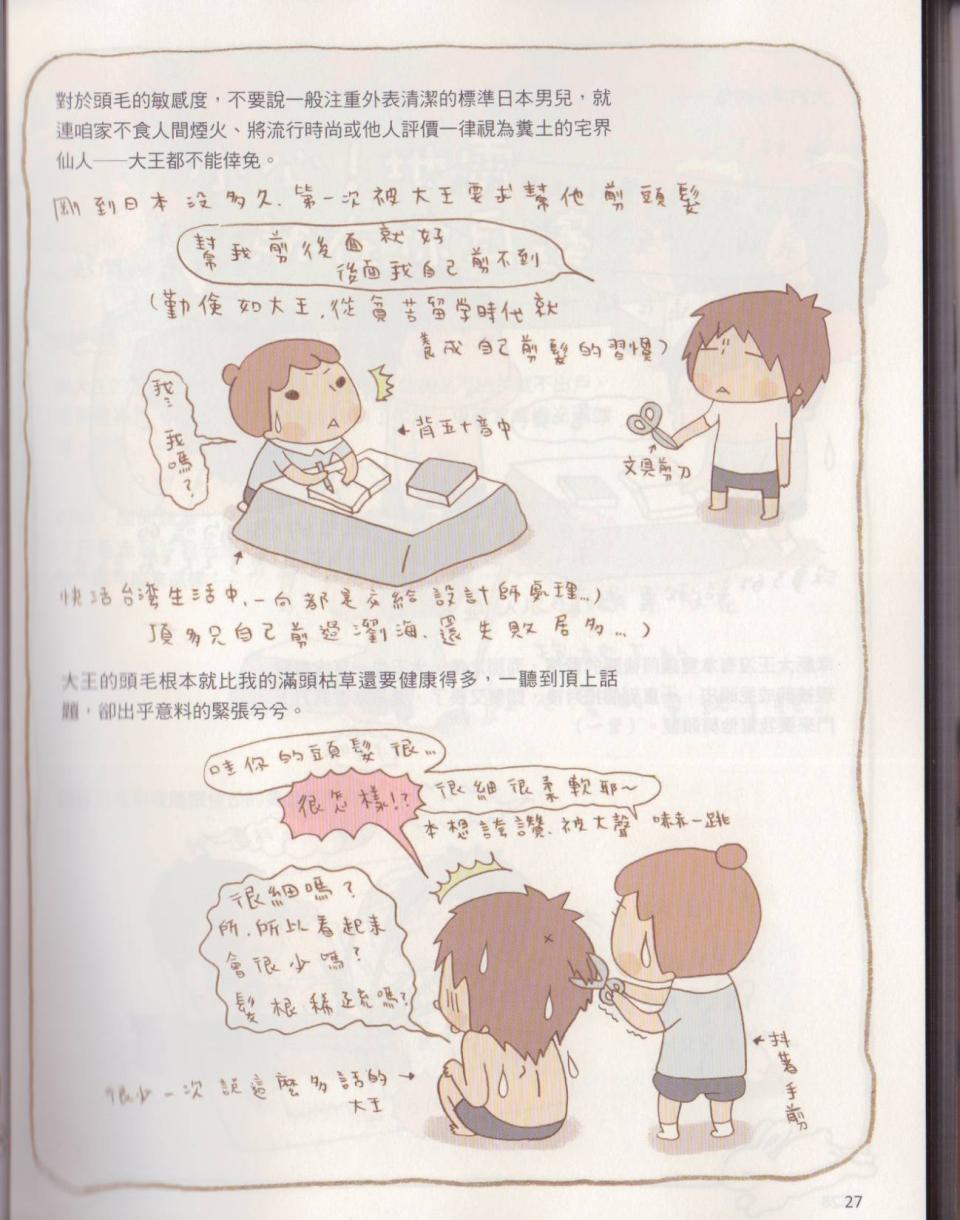 對於頭毛的敏感度，不要說一般注重外表清潔的標準日本男兒，就
連咱家不食人間煙火、將流行時尚或他人評價一律視為糞土的宅界
仙人——大王都不能倖免。
剛到日本沒多久.第一次被大王要求幫他剪頭髮
幫我剪後面就好
後面我自己剪不到
(勤儉如大王.從貧苦留学時代就
養成自己剪髮的習慣)
我…
我嗎?
←背五十音中
文具剪刀
快活台灣生活中.一向都是交給設計師處理…)
頂多只自己剪過瀏海.還失敗居多…)
大王的頭毛根本就比我的滿頭枯草還要健康得多，一聽到頂上話
題，卻出乎意料的緊張兮兮。
哇你的頭髮很…
很怎樣!?
很細很柔軟耶~
本想誇讚.被大聲嚇一跳
很細嗎?
所.所以看起來
會很少嗎?
髮根稀疏嗎?
很少一次說這麼多話的→
大王
←抖著手剪
27